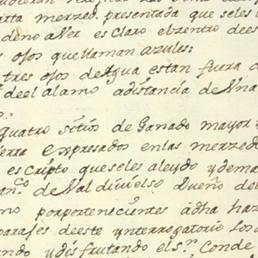 arta merzed, presentada que seles
deno aver es Claro elzentro dees
os ojos que llaman azules:
tres ojos de Agua estan fuera
deel alamo adistancia de Vna
quatro sitios de Ganado mayor
ierra expresados enlas merzed
escripto queseles aleydo ydema
an.co de Val diuielso dueño de
mo porpertenezientes adha haz
parajes deeste ynterrogatorio los
ando ydisfrutando el S.r Conde